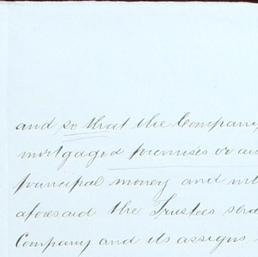 and so that the Company
mortgaged premises or an
principal money and int
aforesaid the Trustees sha
Company and its assigns